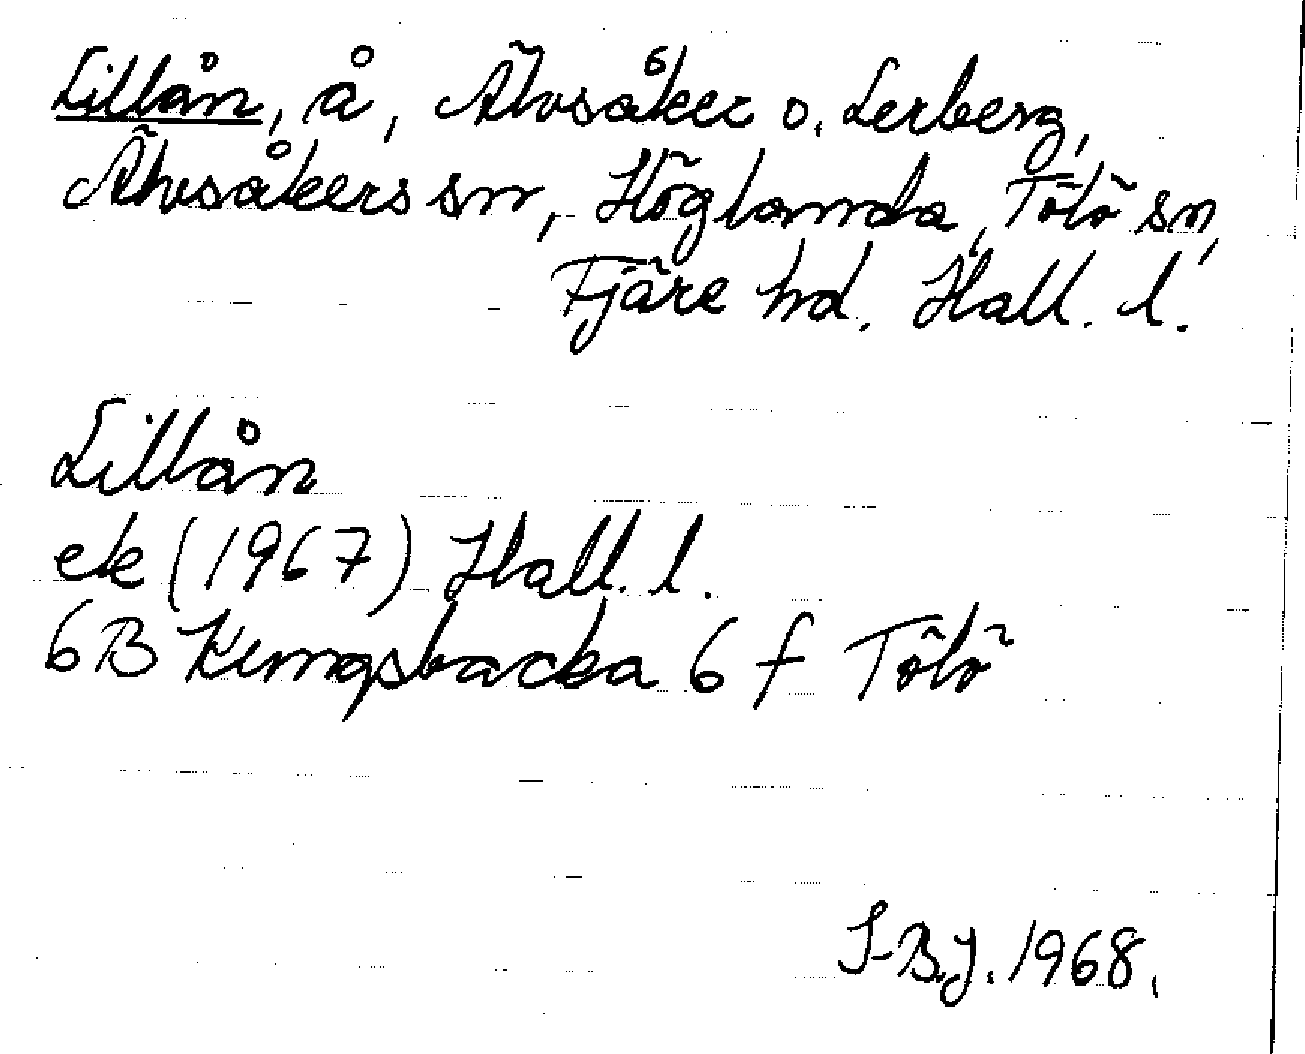 Lillån, å, Älvsåker o. Lerberg,
Älvsåkers sn, Höglanda, Tölö sn,
Fjäre hd. Hall. l.
Lillån
ek (1967) Hall. l.
6B Kungsbacka 6 f Tölö
I-B.J. 1968.